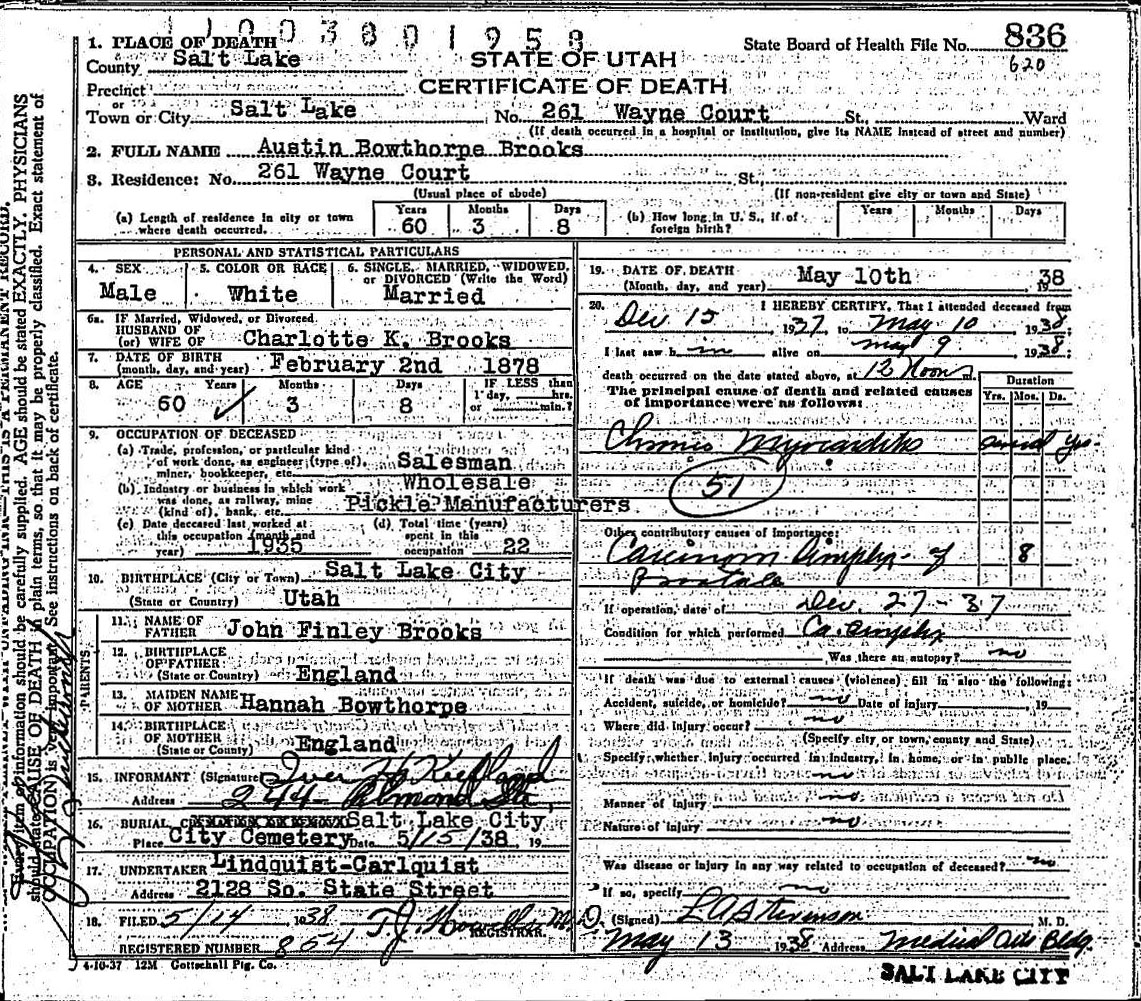 1003801958
1. PLACE OF DEATH
County Salt Lake
STATE OF UTAH
CERTIFICATE OF DEATH
State Board of Health File No. 836
620
Precinct
or
Town or City Salt Lake No. 261 Wayne Court St., Ward
(If death occurred in a hospital or institution, give its NAME instead of street and number)
2. FULL NAME Austin Bowthorpe Brooks
3. Residence: No. 261 Wayne Court St.,
(Usual place of abode) (If non-resident give city or town and State)
(a) Length of residence in city or town where death occurred. Years 60 Months 3 Days 8
(b) How long in U. S., if of foreign birth? Years Months Days
PERSONAL AND STATISTICAL PARTICULARS
4. SEX Male
5. COLOR OR RACE White
6. SINGLE, MARRIED, WIDOWED, or DIVORCED (Write the Word) Married
6a. IF Married, Widowed, or Divorced
HUSBAND OF
(or) WIFE OF Charlotte K. Brooks
7. DATE OF BIRTH
(month, day, and year) February 2nd 1878
8. AGE Years Months Days IF LESS than
60 3 8 1 day, hrs.
or min.?
9. OCCUPATION OF DECEASED
(a) Trade, profession, or particular kind
of work done, as engineer (type of),
miner, bookkeeper, etc. Salesman
(b) Industry or business in which work
was done, as railway, mine
(kind of), bank, etc. Wholesale
Pickle Manufacturers
(c) Date deceased last worked at
this occupation (month and
year) 1935
(d) Total time (years)
spent in this
occupation 22
10. BIRTHPLACE (City or Town) Salt Lake City
(State or Country) Utah
PARENTS
11. NAME OF
FATHER John Finley Brooks
12. BIRTHPLACE
OF FATHER
(State or Country) England
13. MAIDEN NAME
OF MOTHER Hannah Bowthorpe
14. BIRTHPLACE
OF MOTHER
(State or County) England
15. INFORMANT (Signature)
Address 244 Almond St,
16. BURIAL, Salt Lake City
Place City Cemetery Date 5/15/38, 19
17. UNDERTAKER Lindquist-Carlquist
Address 2128 So. State Street
18. FILED 5/14 1938 T. J. Howells M.D.
REGISTRAR.
REGISTERED NUMBER 854
4-10-37 12M Gottschall Ptg. Co.
19. DATE OF DEATH
(Month, day, and year) May 10th, 1938
20. I HEREBY CERTIFY, That I attended deceased from
Dec 15 1937 to May 10 1938;
I last saw him alive on May 9 1938;
death occurred on the date stated above, at 12 Noon m.
The principal cause of death and related causes
of importance were as follows:
Duration
Yrs. Mos. Ds.
Chronic Myocarditis yrs.
51
Other contributory causes of importance:
Carcinoma of 8
Prostate
If operation, date of Dec. 27-37
Condition for which performed Ca.
Was there an autopsy? no
If death was due to external causes (violence) fill in also the following:
Accident, suicide, or homicide? no Date of injury , 19
Where did injury occur? no
(Specify city or town, county and State)
Specify whether injury occurred in industry, in home, or in public place.
no
Manner of injury no
Nature of injury no
Was disease or injury in any way related to occupation of deceased? no
If so, specify no
(Signed) L A Stevenson M. D.
May 13 1938 Address Medical Arts Bldg.
SALT LAKE CITY
THIS IS A PERMANENT RECORD.
Every item of information should be carefully supplied. AGE should be stated EXACTLY. PHYSICIANS
should state CAUSE OF DEATH in plain terms, so that it may be properly classified. Exact statement of
OCCUPATION is very important. See instructions on back of certificate.